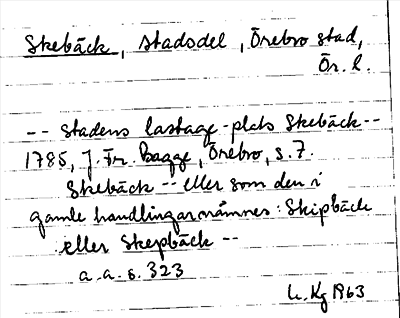 Skebäck, stadsdel, Örebro stad,
Ör. l.
-- stadens lastage-plats Skebäck --
1785, J. Fr. Bagge, Örebro, s. 7.
Skebäck -- eller som den i
gamle handlingar nämnes: Skipbäck
eller Skepbäck --
a. a. s. 323
L. Kg 1963